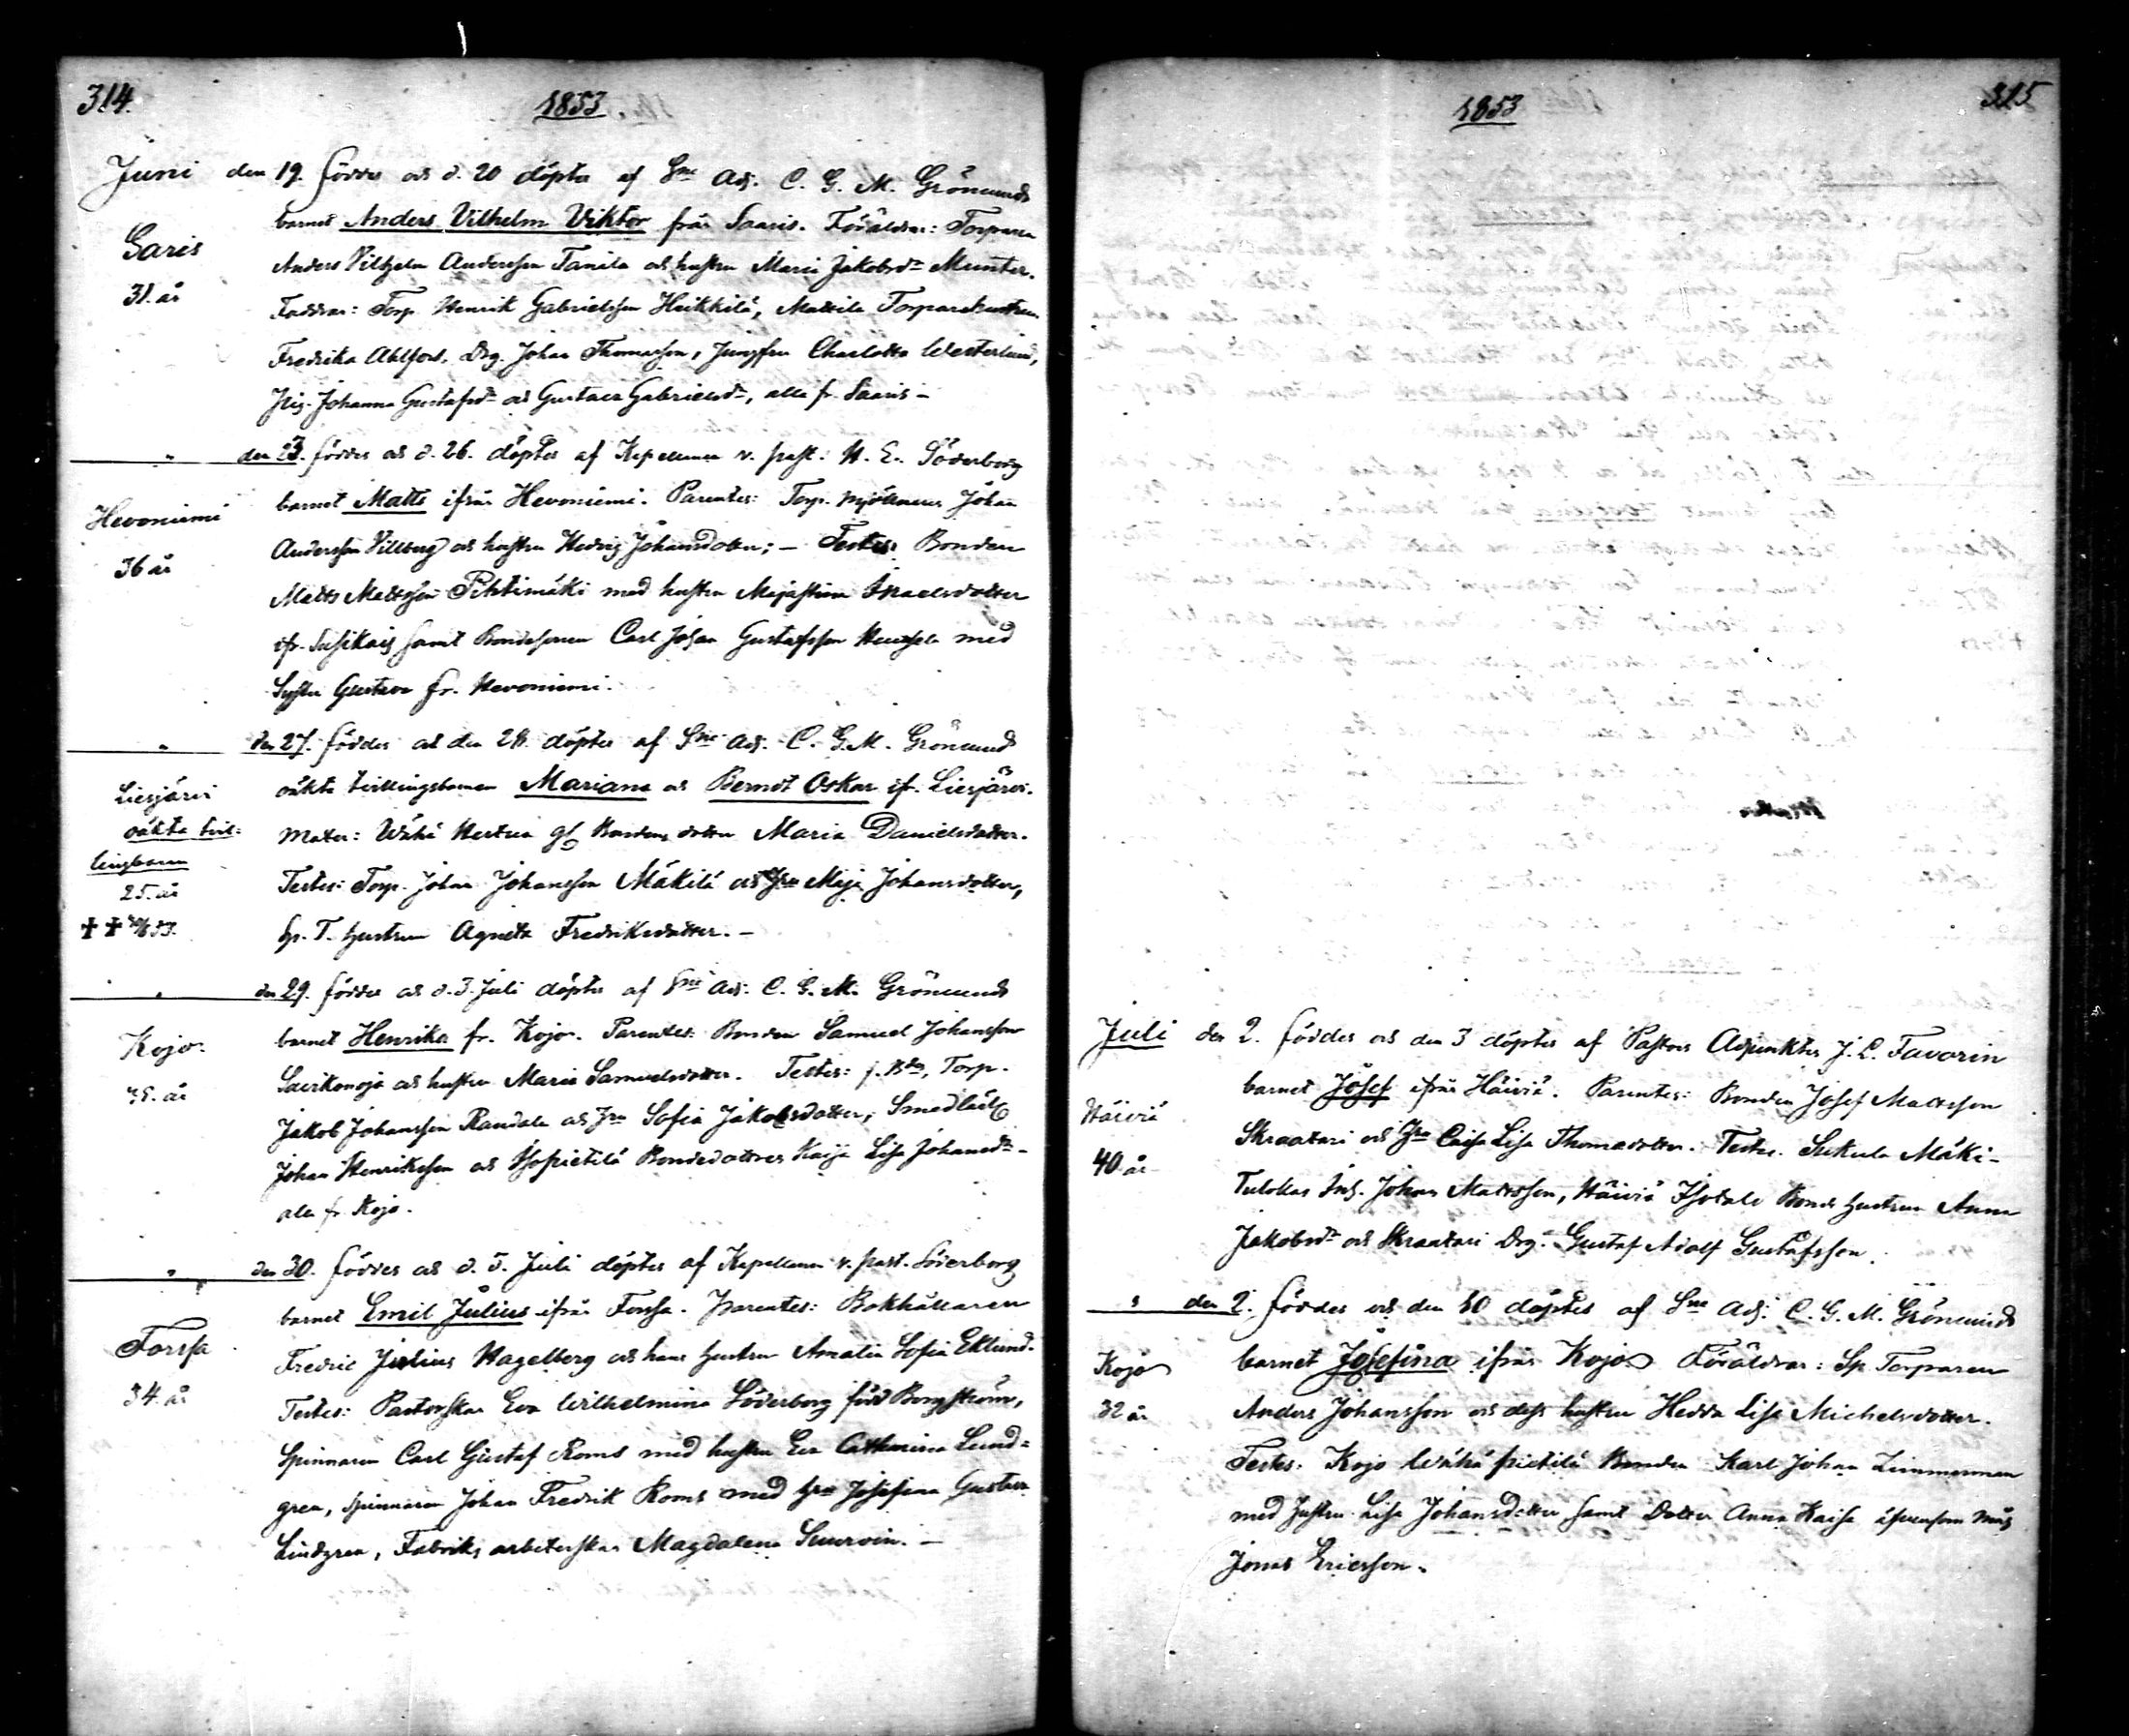 314.
1853
Juni den 19. föddes och d. 20 döptes af Sne Adj. C. G. M. Grönmund
barnet Anders Vilhelm Viktor från Saaris. Föräldrar: Torparen
Saris
Anders Vilhelm Andersson Tanila och hustru Maria Jakobsdr Munter.
31. år
Faddrar: Torp. Henrik Gabrielsson Heikkilä, Mattila Torparehustrun
Fredrika Ahlfors, Drg. Johan Thomasson, Jungfru Charlotta Westerlund,
Pig. Johanna Gustafsdr och Gustava Gabrielsdr, alla fr. Saaris –
" den 23. föddes och d. 26. döptes af Kapellanen v. past. H. E. Söderborg
barnet Matts ifrån Hevoniemi. Parentes: Torp. Mjölnaren Johan
Hevoniemi
Andersson Villberg och hustru Hedvig Johansdotter; – Testes: Bonden
36 år
Matts Mattsson Pehtimäki med hustru Majastina Israelsdotter
ifr. Susikais samt Bondesonen Carl Johan Gustafsson med
Syster Gustava fr. Hevoniemi.
" den 27. föddes och den 28. döptes af Sne Adj. C. G. M. Grönmund
oäkta tvillingsbarnen Mariana och Berndt Oskar if. Liesjärvi.
Liesjärvi
oäkta tvil-
lingbarn
25. år
Mater: Wähä Hertua Bondens dotter Maria Danielsdotter.
Testes: Torp. Johan Johansson Mäkilä och Hru Maja Johansdotter,
Sp. T. hustrun Agneta Fredriksdotter. –
" den 29. föddes och d. 3. Juli döptes af Sne Adj. C. G. M. Grönmund
barnet Henrika fr. Kojo. Parentes: Bonden Samuel Johansson
Kojo.
Savikonoja och hustru Maria Samuelsdotter. Testes: Torp.
Jakob Johansson Randala och Hru Sofia Jakobsdotter, Smedlärl.
Johan Henriksson och Isopietilä Bondedotter Kaija Lisa Johansdr –
alla fr. Kojo.
" den 30. föddes och d. 5. Juli döptes af Kapellanen v. past. Söderborg
barnet Emil Julius ifrån Forssa. Parentes: Bokhållaren
Forssa
Fredric Julius Hagelberg och hans hustru Amalia Sofia Eklund.
34. år
Testes: Pastorskan Eva Wilhelmina Söderborg född Borgström,
Spinnaren Carl Gustaf Roms med hustru Eva Catharina Lund-
gren, Spinnaren Johan Fredrik Roms med Hru Josefina Gustava
Lindgren, Fabriks arbeterskan Magdalena Suurvin. –
315
1853
Juli den 2. föddes och den 3 döptes af Pastors Adjunkten J. L. Favorin
barnet Josef ifrån Häiviä. Parentes: Bonden Josef Mattsson
Häiviä
Skraatari och Hru Caisa Lisa Thomasdotter. Testes. Sukula Mäki-
40 år
Tulokas Inh. Johan Mattsson, Häiviä Isotalo Bonde hustrun Anna
Jakobsdr och Skraatari Drg. Gustaf Adolf Gustafsson.
" den 2. föddes och den 10 döptes af Sne Adj. C. G. M. Grönmund
barnet Josefina ifrån Kojo. Föräldrar: Sp. Torparen
Kojo
Anders Johansson och dess hustru Hedda Lisa Michelsdotter.
32 år
Testes. Kojo Wähä pietilä Bonden Karl Johan Zimmerman
med hustru Lisa Johansdotter samt Dotter Anna Kaisa äfvensom Måg
Jonas Ericsson.